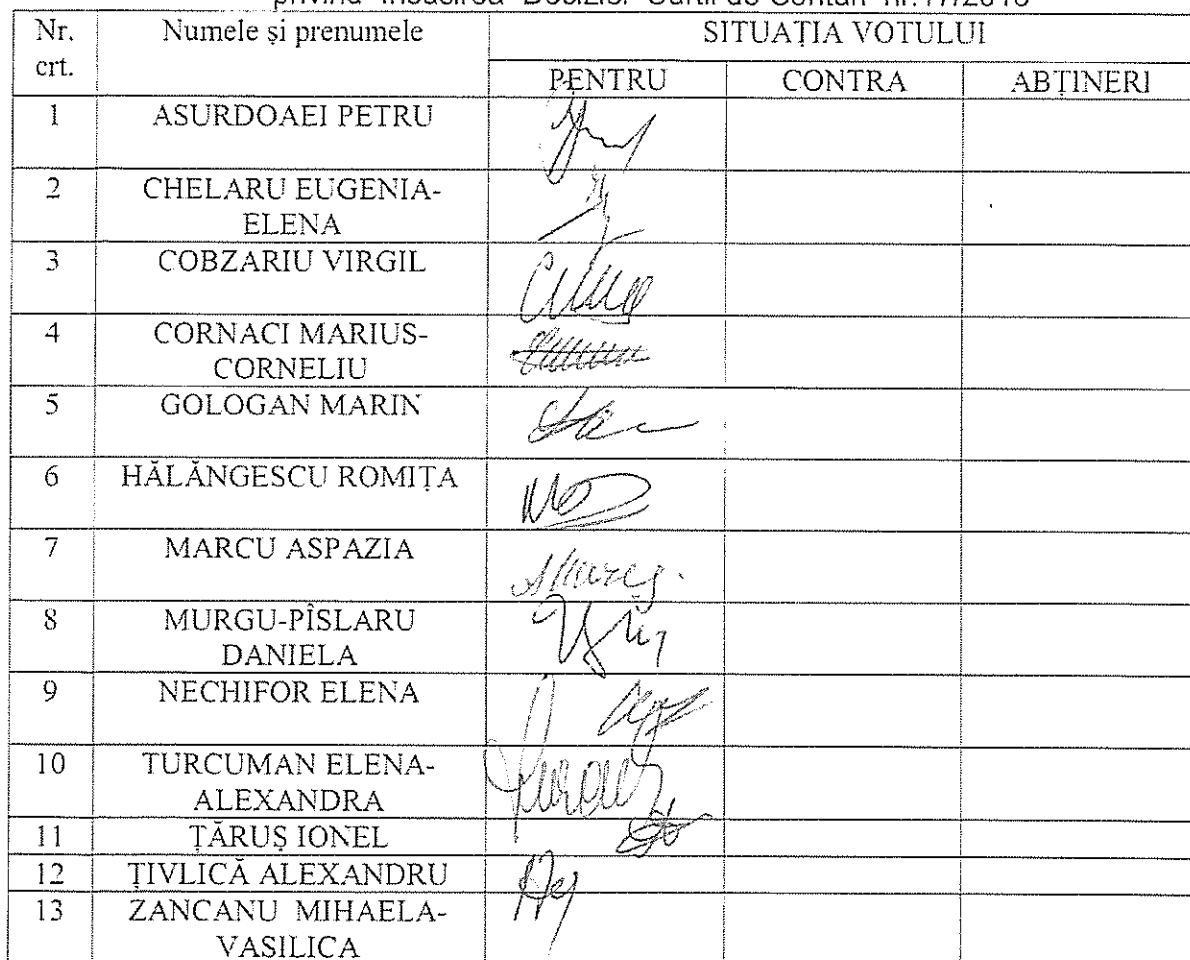 privind însușirea Deciziei Curții de Conturi nr.17/2016
Nr. crt. Numele și prenumele SITUAȚIA VOTULUI
PENTRU CONTRA ABȚINERI
1 ASURDOAEI PETRU
2 CHELARU EUGENIA-
ELENA
3 COBZARIU VIRGIL
4 CORNACI MARIUS-
CORNELIU
5 GOLOGAN MARIN
6 HĂLĂNGESCU ROMIȚA
7 MARCU ASPAZIA
8 MURGU-PÎSLARU
DANIELA
9 NECHIFOR ELENA
10 TURCUMAN ELENA-
ALEXANDRA
11 ȚĂRUȘ IONEL
12 ȚIVLICĂ ALEXANDRU
13 ZANCANU MIHAELA-
VASILICA